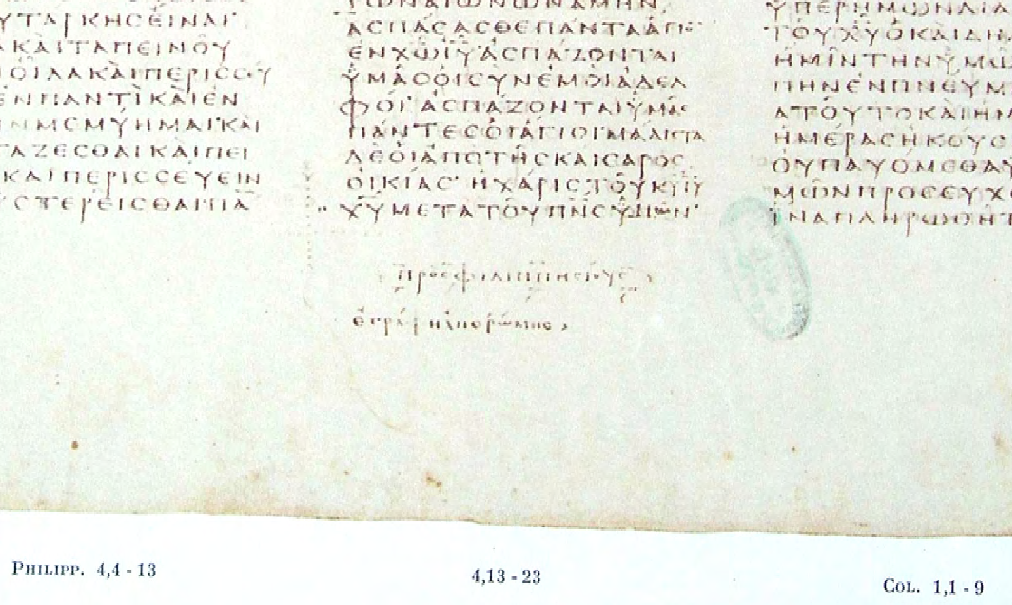 ΥΤΑΡΚΗCΕΙΝΑΙ
ΚΑΙΤΑΠΕΙΝΟΥ
ΟΙΔΑΚΑΙΠΕΡΙCCΕΥ
ΕΝΠΑΝΤΙΚΑΙΕΝ
ΙΝΜΕΜΥΗΜΑΙΚΑΙ
ΤΑΖΕCΘΑΙΚΑΙΠΕΙ
ΚΑΙΠΕΡΙCCΕΥΕΙΝ
ΥCΤΕΡΕΙCΘΑΙΠΑ
ΤΩΝΑΙΩΝΩΝΑΜΗΝ
ΑCΠΑCΑCΘΕΠΑΝΤΑΑΓΙΟ
ΕΝΧΩΙΥΑCΠΑΖΟΝΤΑΙ
ΥΜΑCΟΙCΥΝΕΜΟΙΑΔΕΛ
ΦΟΙ ΑCΠΑΖΟΝΤΑΙΥΜΑC
ΠΑΝΤΕCΟΙΑΓΙΟΙΜΑΛΙCΤΑ
ΔΕΟΙΑΠΟΤΗCΚΑΙCΑΡΟC
ΟΙΚΙΑC ΗΧΑΡΙCΤΟΥΚΥΙΥ
ΧΥΜΕΤΑΤΟΥΠΝCΥΜΩΝ
ΠΡΟCΦΙΛΙΠΠΗCΙΟΥC
ΥΠΕΡΗΜΩΝΔΙΑ
ΤΟΥΧΥΟΚΑΙΔΗ
ΗΜΙΝΤΗΝΥΜΩ
ΠΗΝΕΝΠΝΕΥΜ
ΑΤΟΥΤΟΚΑΙΗΜ
ΗΜΕΡΑCΗΚΟΥC
ΟΥΠΑΥΟΜΕΘΑΥ
ΜΩΝΠΡΟCΕΥΧΟ
ΙΝΑΠΛΗΡΩΘΗΤ
PHILIPP. 4,4 - 13
4,13 - 23
COL. 1,1 - 9